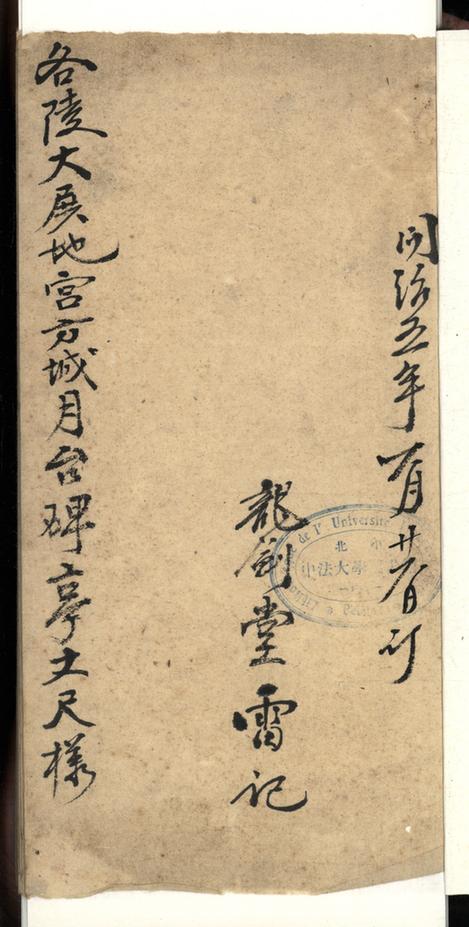 同治五年八月廿八日訂
龍劍堂雷記
各陵大展地宮方城月台碑亭土尺樣
de l'Université
北
中法大學